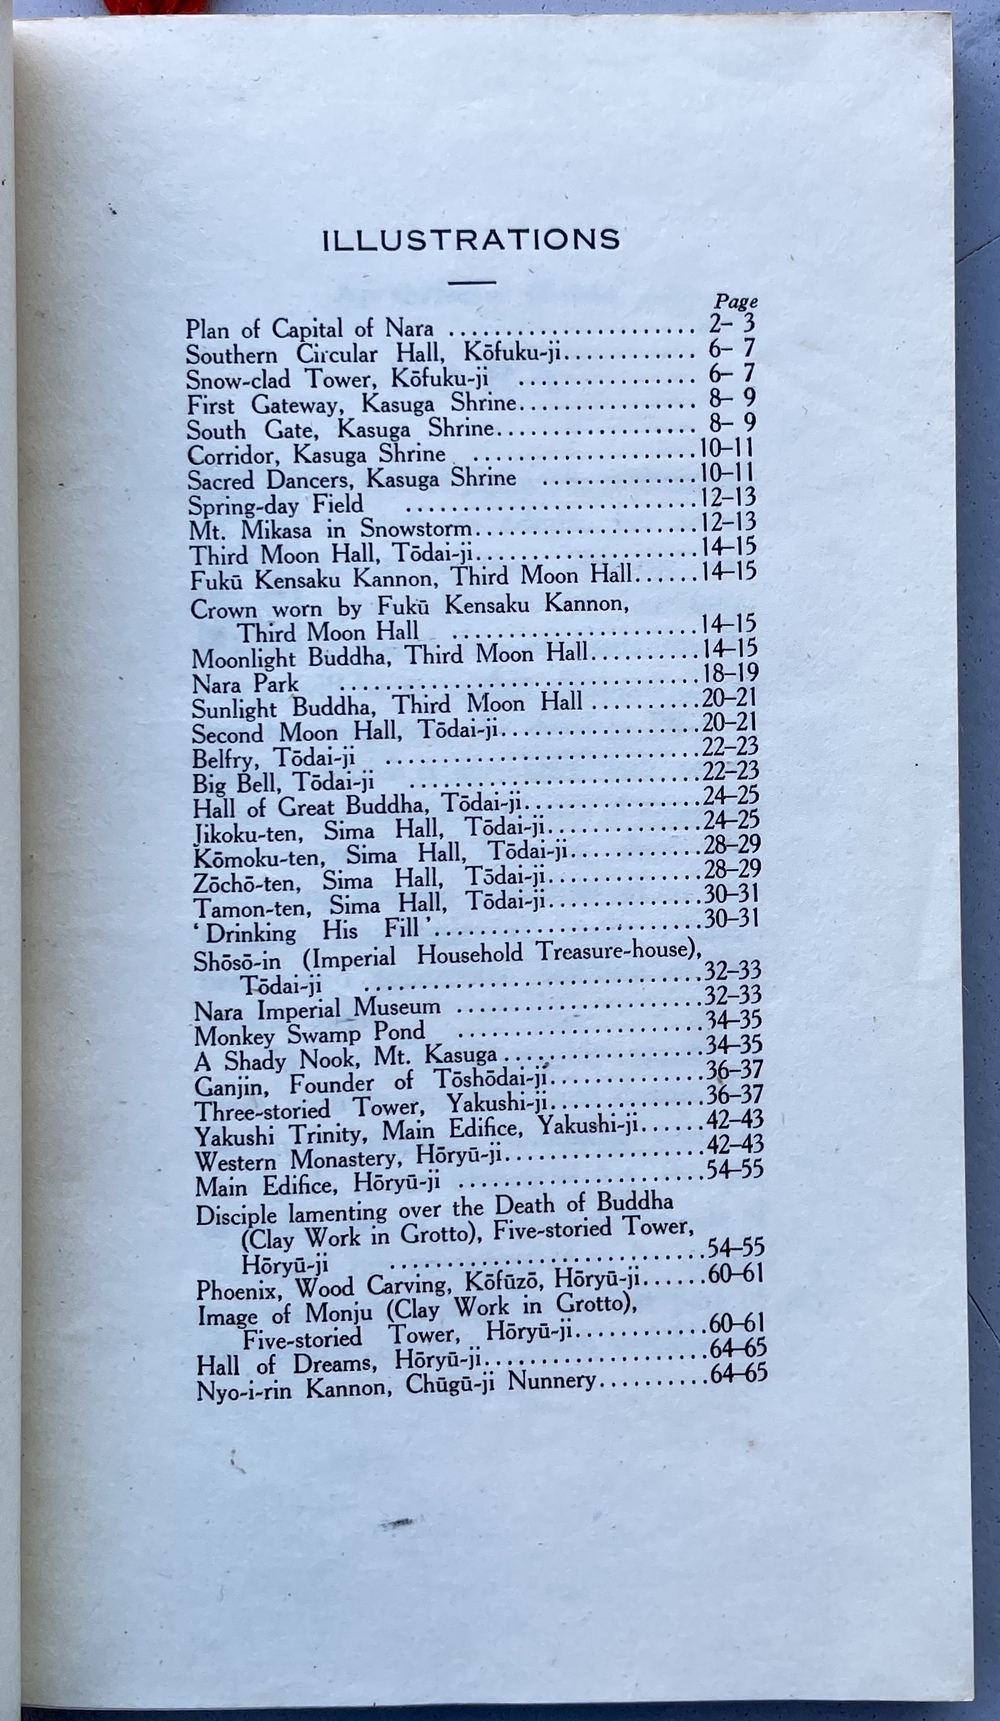 ILLUSTRATIONS
Page
Plan of Capital of Nara ...................... 2– 3
Southern Circular Hall, Kōfuku-ji............ 6– 7
Snow-clad Tower, Kōfuku-ji ................ 6– 7
First Gateway, Kasuga Shrine................ 8– 9
South Gate, Kasuga Shrine.................. 8– 9
Corridor, Kasuga Shrine ....................10–11
Sacred Dancers, Kasuga Shrine ..............10–11
Spring-day Field ..........................12–13
Mt. Mikasa in Snowstorm....................12–13
Third Moon Hall, Tōdai-ji....................14–15
Fukū Kensaku Kannon, Third Moon Hall......14–15
Crown worn by Fukū Kensaku Kannon,
Third Moon Hall ......................14–15
Moonlight Buddha, Third Moon Hall..........14–15
Nara Park ................................18–19
Sunlight Buddha, Third Moon Hall ..........20–21
Second Moon Hall, Tōdai-ji..................20–21
Belfry, Tōdai-ji ............................22–23
Big Bell, Tōdai-ji ..........................22–23
Hall of Great Buddha, Tōdai-ji................24–25
Jikoku-ten, Sima Hall, Tōdai-ji..............24–25
Kōmoku-ten, Sima Hall, Tōdai-ji............28–29
Zōchō-ten, Sima Hall, Tōdai-ji..............28–29
Tamon-ten, Sima Hall, Tōdai-ji..............30–31
‘Drinking His Fill’........................30–31
Shōsō-in (Imperial Household Treasure-house),
Tōdai-ji ..............................32–33
Nara Imperial Museum ......................32–33
Monkey Swamp Pond ......................34–35
A Shady Nook, Mt. Kasuga..................34–35
Ganjin, Founder of Tōshōdai-ji..............36–37
Three-storied Tower, Yakushi-ji..............36–37
Yakushi Trinity, Main Edifice, Yakushi-ji......42–43
Western Monastery, Hōryū-ji..................42–43
Main Edifice, Hōryū-ji ......................54–55
Disciple lamenting over the Death of Buddha
(Clay Work in Grotto), Five-storied Tower,
Hōryū-ji ............................54–55
Phoenix, Wood Carving, Kōfūzō, Hōryū-ji......60–61
Image of Monju (Clay Work in Grotto),
Five-storied Tower, Hōryū-ji............60–61
Hall of Dreams, Hōryū-ji....................64–65
Nyo-i-rin Kannon, Chūgū-ji Nunnery..........64–65